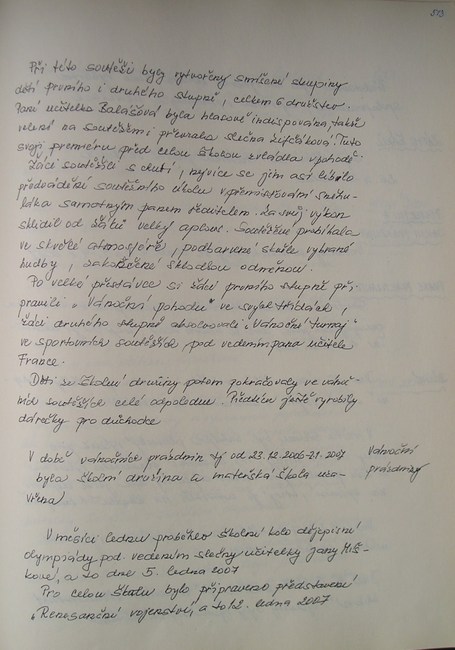 513
Při této soutěži byly vytvořeny smíšené skupiny
dětí prvního i druhého stupně, celkem 6 družstev.
Paní učitelka Balášová byla hlasově indisponována, takže
velení na soutěžemi převzala slečna Žifčáková. Tuto
svoji premiéru před celou školou zvládla v pohodě.
Žáci soutěžili s chutí, nejvíce se jim asi líbilo
předvádění soutěžního úkolu v přemisťování sněhu-
láka samotným panem ředitelem. Za svůj výkon
sklidil od žáků velký aplaus. Soutěžení probíhalo
ve skvělé atmosféře, podbarvené skvěle vybrané
hudby, zakončené sladkou odměnou.
Po velké přestávce si žáci prvního stupně při-
pravili "Vánoční pohodu" ve svých třídách,
žáci druhého stupně absolvovali "Vánoční turnaj"
ve sportovních soutěžích, pod vedením pana učitele
France.
Děti ze školní družiny potom pokračovaly ve vánoč-
ních soutěžích celé odpoledne. Předtím ještě vyrobily
dárečky pro důchodce
V době vánočních prázdnin tj od 23.12.2006-2.1.2007
byla školní družina a mateřská škola uza-
vřena
Vánoční
prázdniny
V měsíci lednu proběhlo školní kolo dějepisné
olympiády pod vedením slečny učitelky Jany Miš-
kové, a to dne 5. ledna 2007
Pro celou školu bylo připraveno představení
"Renesanční vojenství", a to 12. ledna 2007